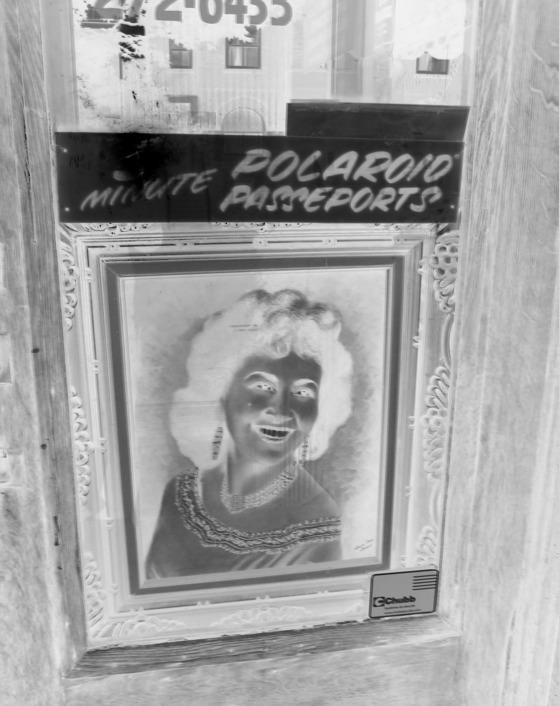 272-6455
MINUTE POLAROID
PASSEPORTS
Chubb